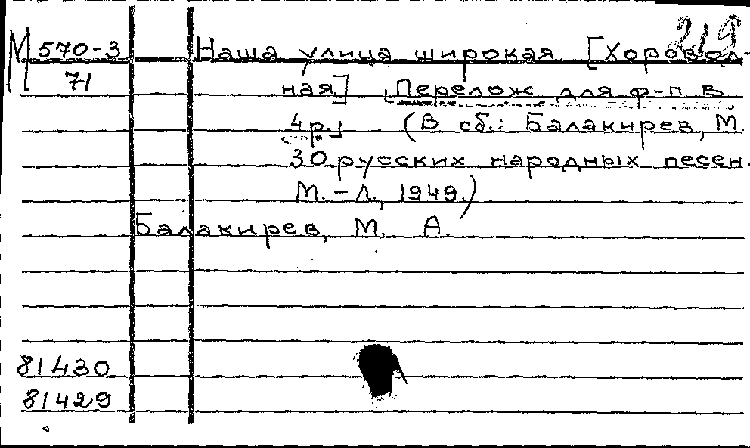 219
М 570-3 Наша улица широкая [Хоровод-
71 ная] [Перелож. для ф-п в
4 р.] (В сб.: Балакирев, М.
30 русских народных песен.
М.-Л., 1949.)
Балакирев, М. А.
81430
81429